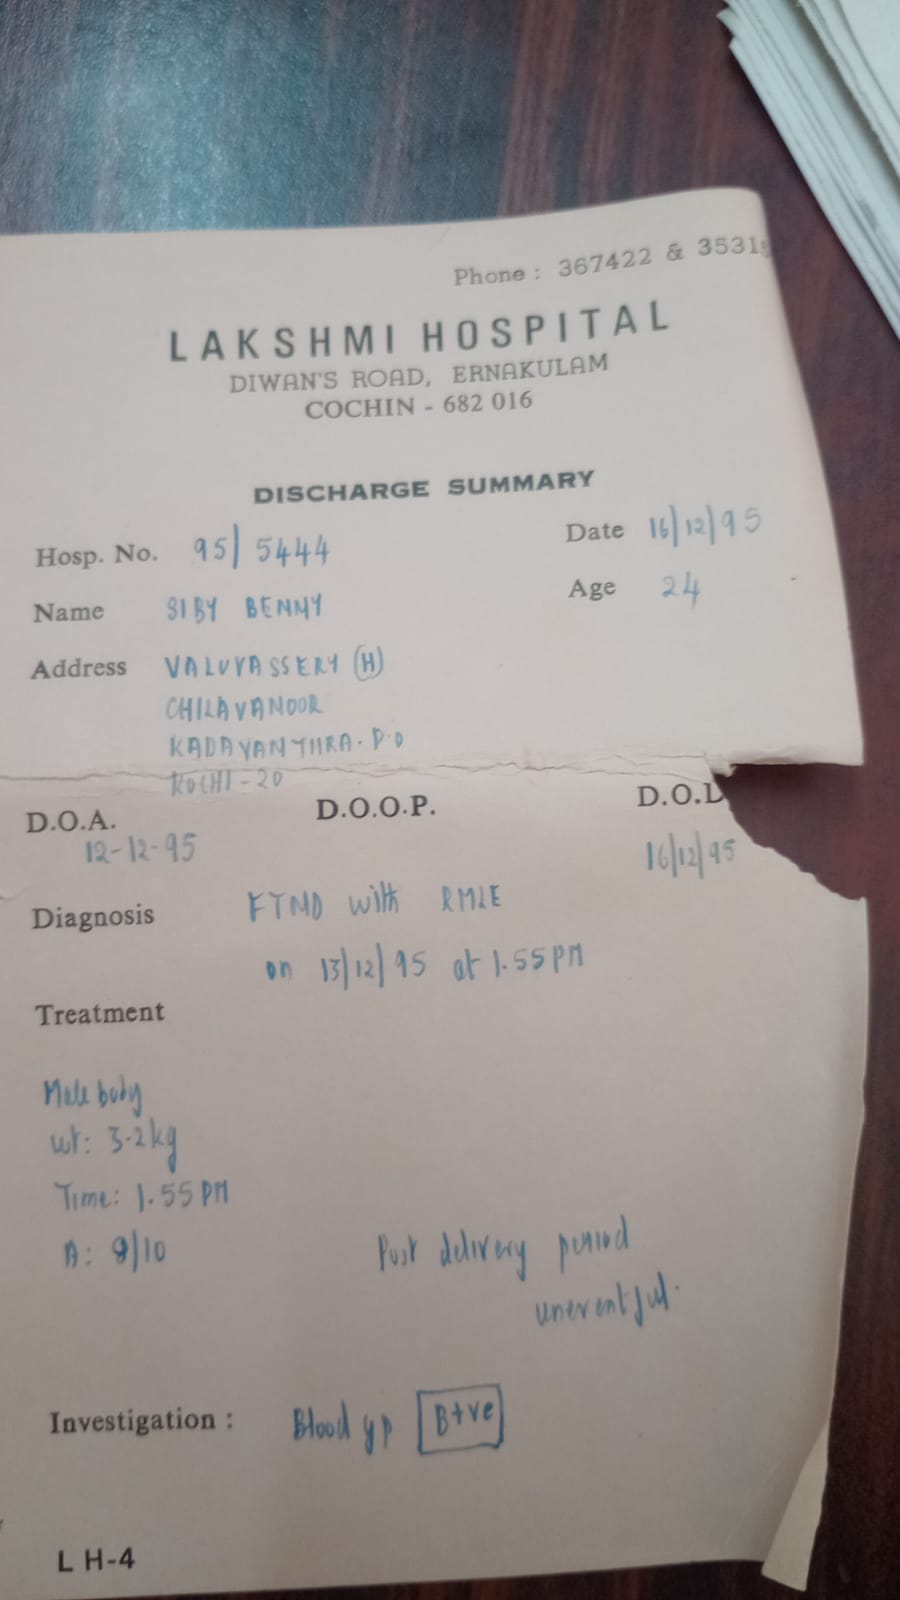 Phone : 367422 & 3531
LAKSHMI HOSPITAL
DIWAN'S ROAD, ERNAKULAM
COCHIN - 682 016
DISCHARGE SUMMARY
Hosp. No. 95/5444 Date 16/12/95
Name SIBY BENNY Age 24
Address VALUYASSERY (H)
CHILAVANOOR
KADAVANTHRA. P.O
KOCHI - 20
D.O.A. D.O.O.P. D.O.D
12-12-95 16/12/95
Diagnosis FTND with RMLE
on 13/12/95 at 1.55 PM
Treatment
Male baby
wt: 3.2kg
Time: 1.55 PM
A: 9/10
Post delivery period
uneventful.
Investigation : Blood gp B+ve
L H-4